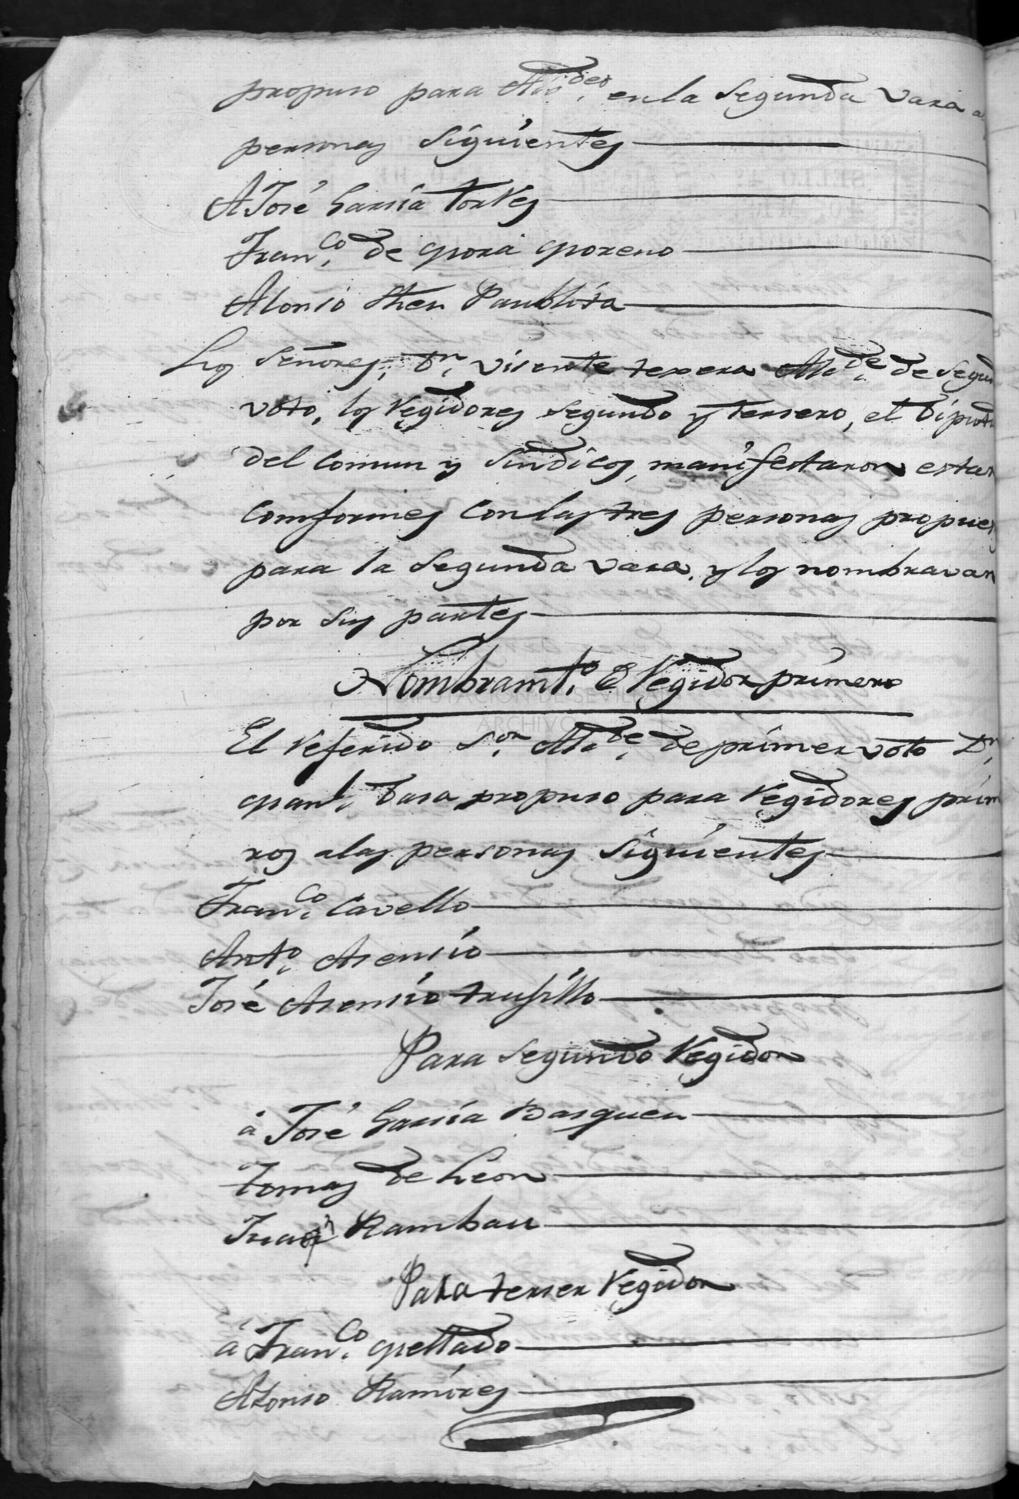 propuso para Alc.des en la Segunda Vara a
personas Siguientes
A José García torres
Fran.co de Mora Moreno
Alonso Then
Los Señores, D.n Vicente texera Alc.de de Segun
voto, los Regidores Segundo y tersero, el Diputa
del comun y Síndicos, manifestaron estar
comformes con las tres personas propues
para la Segunda vara, y los nombravan
por Sus partes
Nombram.to de Regidor primero
El referido S.or Alc.de de primer voto D.n
Man.l Dasa propuso para Regidores prim
ros a las personas Siguientes
Fran.co Cavello
Ant.o Asensio
José Asensio trusillo
Para Segundo Regidor
á José García Basquen
tomas de Leon
Juan Rambau
Para terser Regidor
á Fran.co Mellado
Alonso Ramires